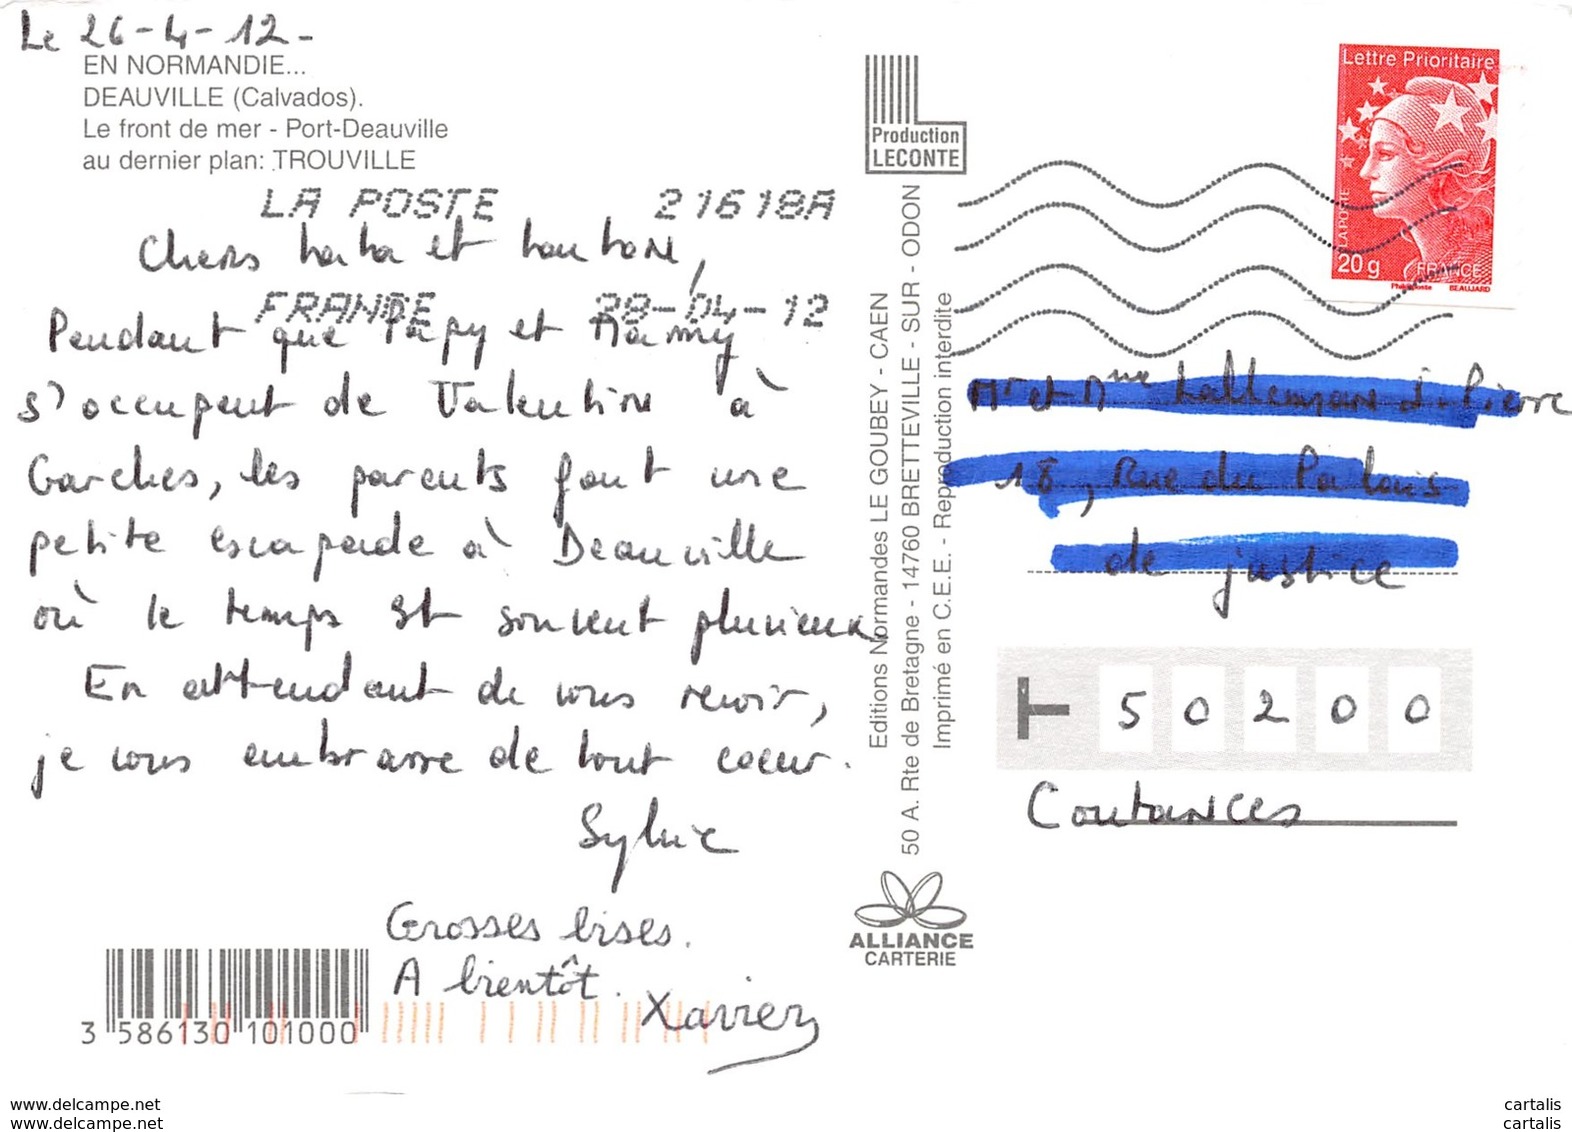 Le 26-4-12-
EN NORMANDIE...
DEAUVILLE (Calvados).
Le front de mer - Port-Deauville
au dernier plan: TROUVILLE
LA POSTE 21618A
FRANCE 28-04-12
Chers tata et tonton,
Pendant que Papy et Mamy
s'occupent de Valentin à
Garches, les parents font une
petite escapade à Deauville
où le temps est souvent pluvieux
En attendant de vous revoir,
je vous embrasse de tout coeur.
Sylvie
Grosses bises.
A bientôt.
Xavier
3 586130 101000
Production
LECONTE
Editions Normandes LE GOUBEY - CAEN
50 A. Rte de Bretagne - 14760 BRETTEVILLE - SUR - ODON
Imprimé en C.E.E. - Reproduction interdite
ALLIANCE
CARTERIE
Lettre Prioritaire
LA POSTE
20 g FRANCE
Phil@poste BEAUJARD
Mr et Mme Pierre
18, Rue du Palais
de justice
50200
Coutances
www.delcampe.net
www.delcampe.net
cartalis
cartalis